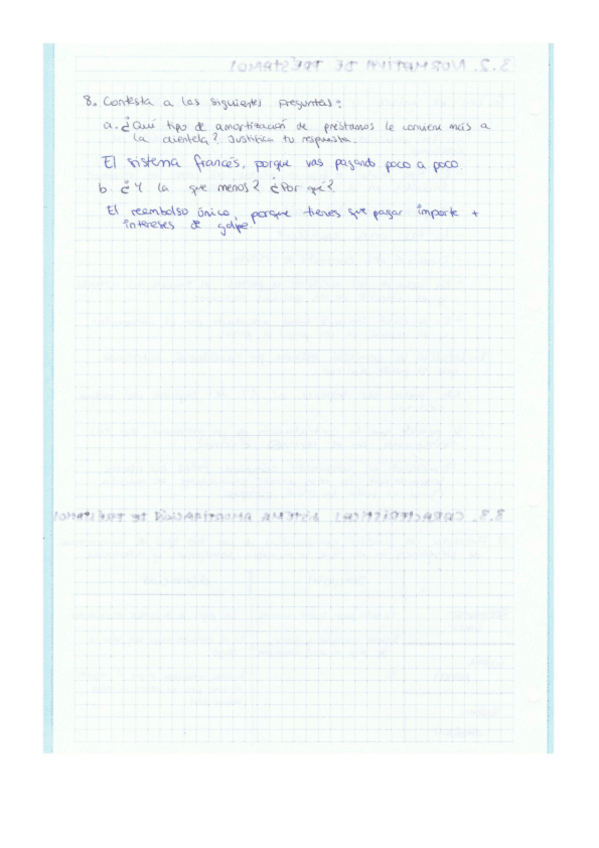 8. Contesta a las siguientes preguntas:
a. ¿Qué tipo de amortización de préstamos le conviene más a
la clientela? Justifica tu respuesta.
El sistema francés, porque vas pagando poco a poco.
b. ¿Y la que menos? ¿Por qué?
El reembolso único, porque tienes que pagar importe +
intereses de golpe.